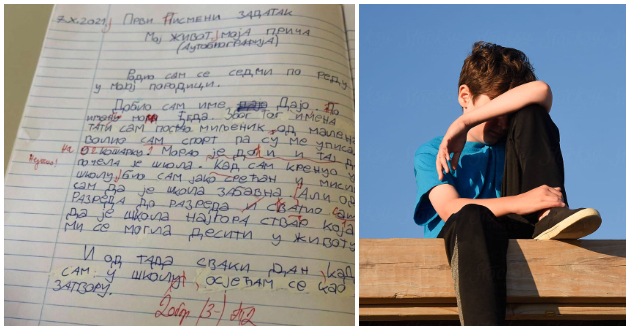 7.X.2021. ПРВИ ПИСМЕНИ ЗАДАТАК
МОЈ ЖИВОТ, МОЈА ПРИЧА
(АУТОБИОГРАФИЈА)
РОДИО САМ СЕ СЕДМИ ПО РЕДУ
У МОЈОЈ ПОРОДИЦИ.
ДОБИО САМ ИМЕ ДАЈО. ПО
ЗБОГ ТОГ ИМЕНА
ТАТИ САМ ПОСТО МИЉЕНИК, ОД МАЛЕНА
ВОЛИО САМ СПОРТ ПА СУ МЕ УПИСА
МОРАО ЈЕ ДОЋИ И ТАЈ Д
ПОЧЕЛА ЈЕ ШКОЛА. КАД САМ КРЕНУО У
ШКОЛУ, БИО САМ ЈАКО СРЕЋАН И МИСЛИ
САМ ДА ЈЕ ШКОЛА ЗАБАВНА. АЛИ ОД
РАЗРЕДА ДО РАЗРЕДА СВАТИО САМ
ДА ЈЕ ШКОЛА НАЈГОРА СТВАР КОЈА
МИ СЕ МОГЛА ДЕСИТИ У ЖИВОТУ
И ОД ТАДА СВАКИ ДАН, КАД
САМ У ШКОЛИ, ОСЈЕЋАМ СЕ КАО
ЗАТВОРУ.
Добар (3-)